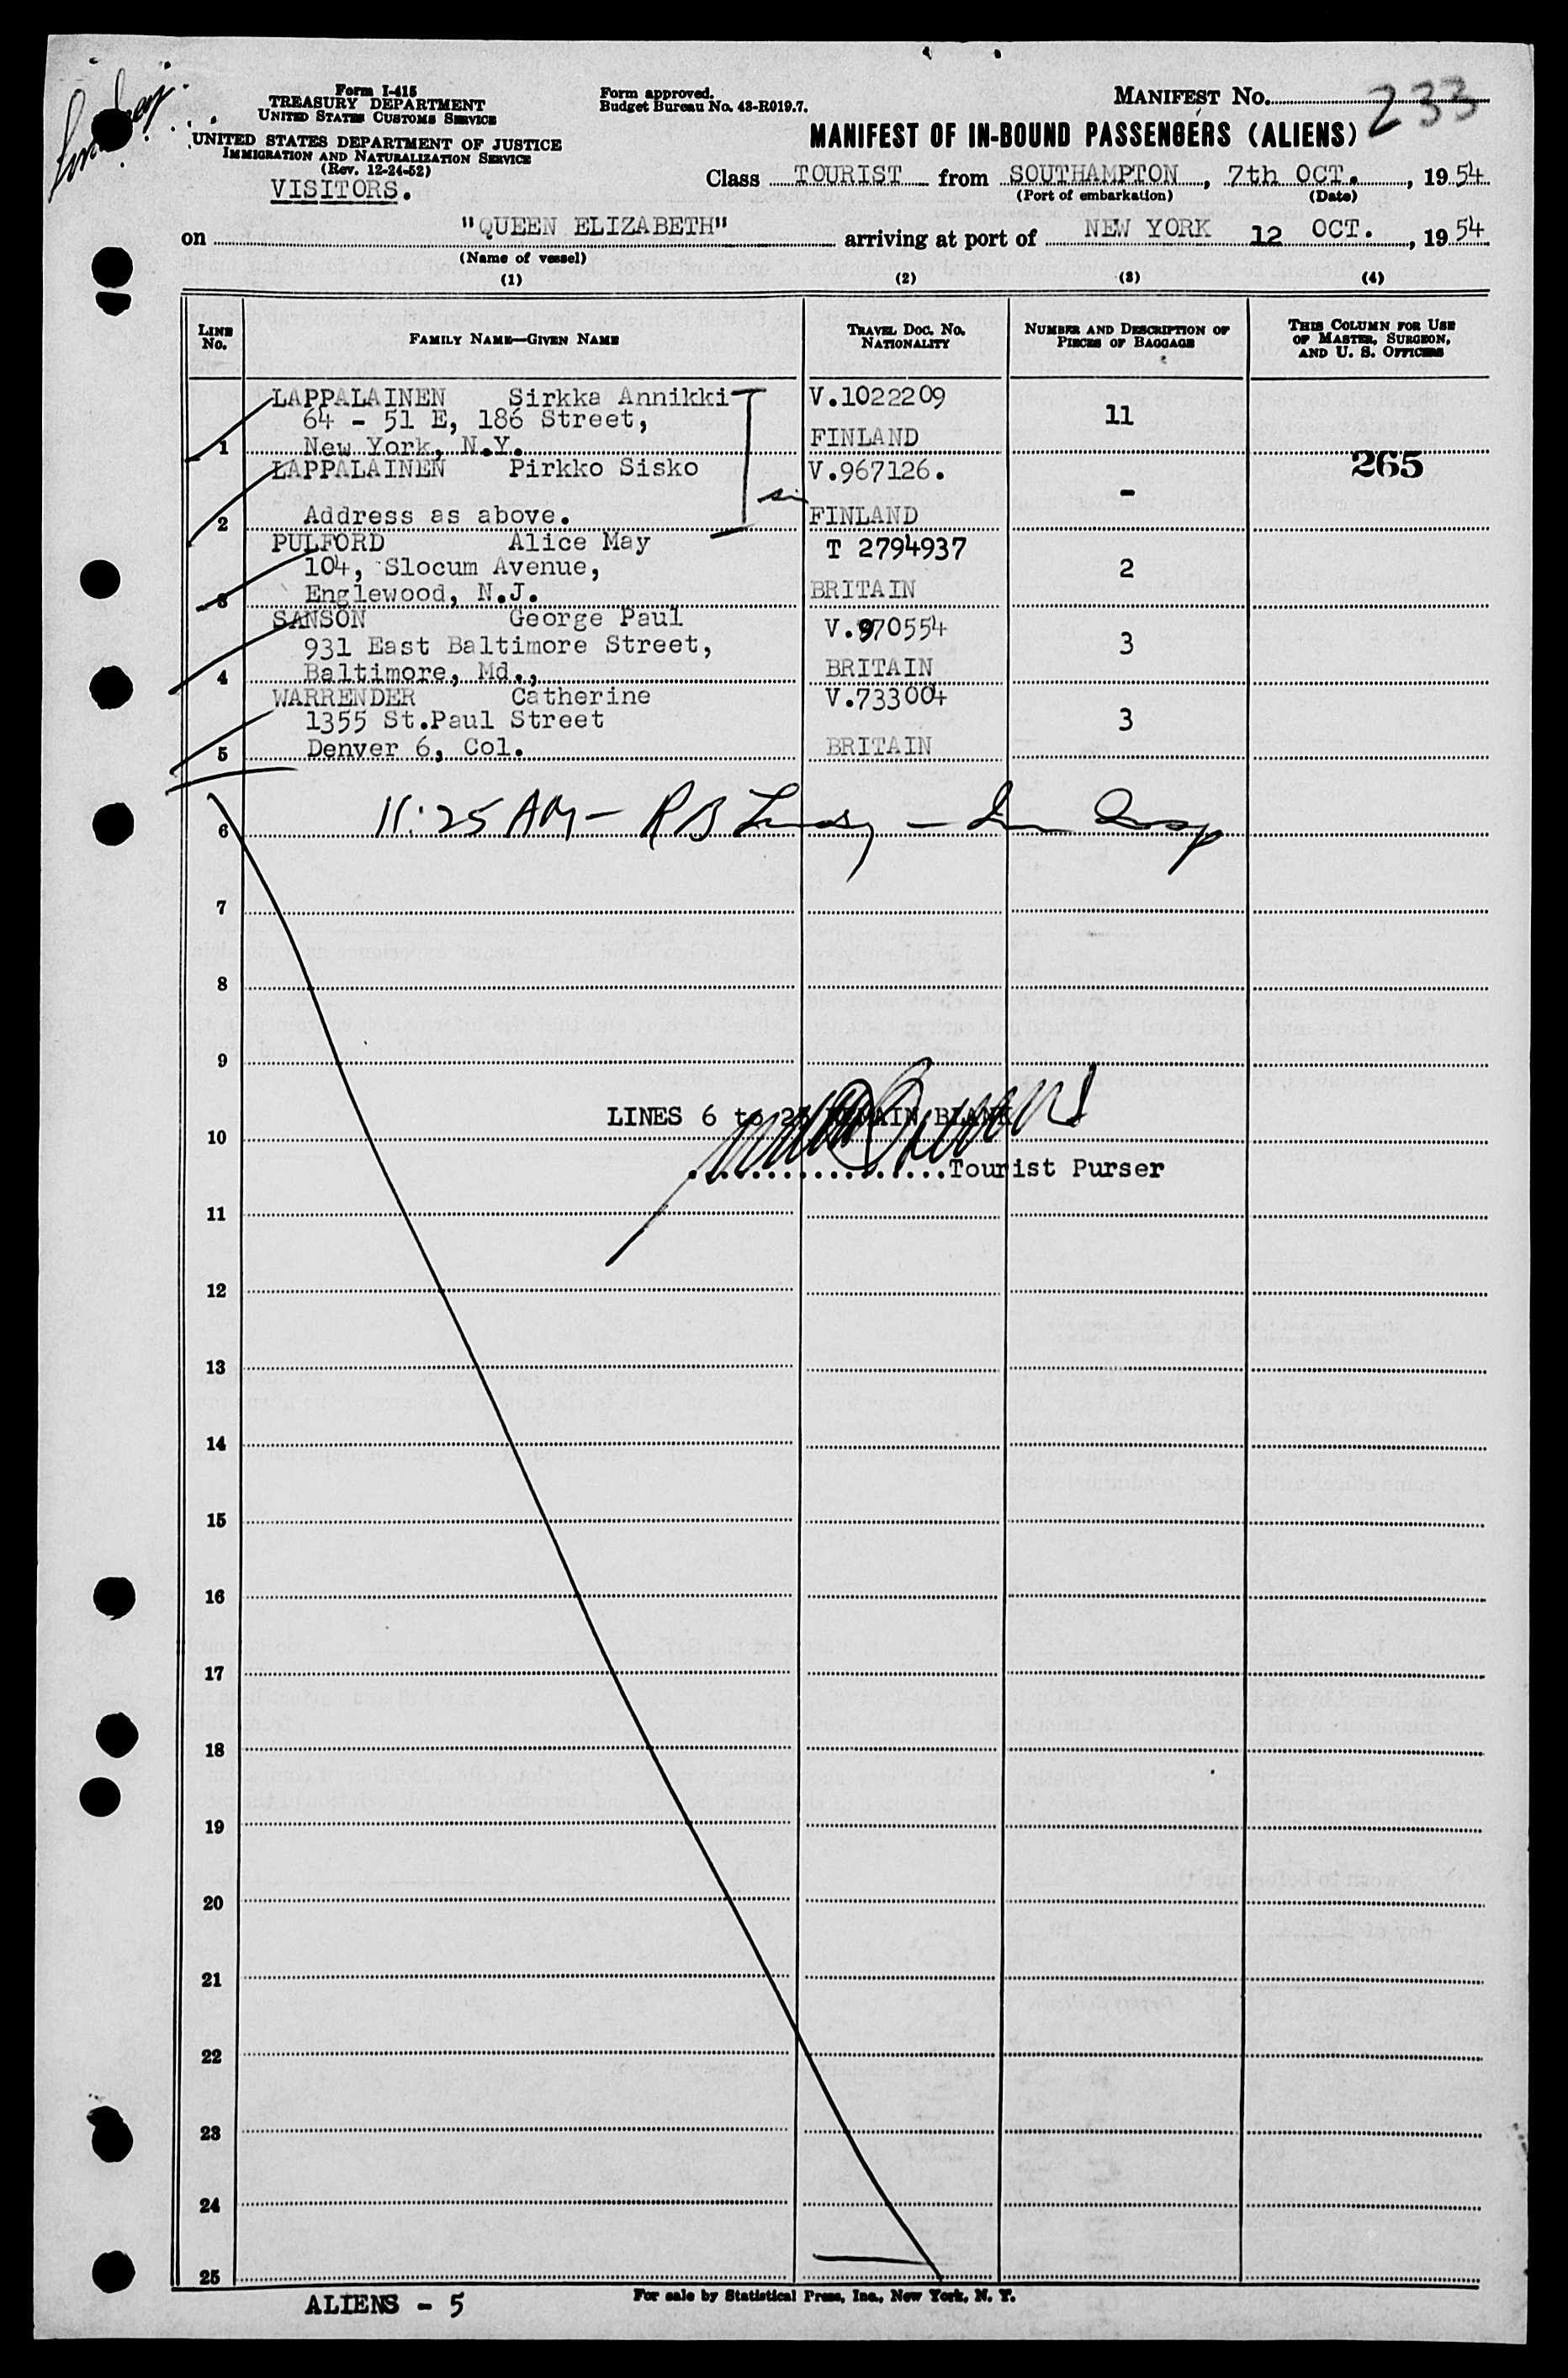 Form I-415
TREASURY DEPARTMENT
UNITED STATES CUSTOMS SERVICE
UNITED STATES DEPARTMENT OF JUSTICE
IMMIGRATION AND NATURALIZATION SERVICE
(Rev. 12-24-52)
VISITORS.
Form approved.
Budget Bureau No. 43-R019.7.
MANIFEST No. 233
MANIFEST OF IN-BOUND PASSENGERS (ALIENS)
Class TOURIST from SOUTHAMPTON, 7th OCT., 1954
(Port of embarkation) (Date)
on "QUEEN ELIZABETH" arriving at port of NEW YORK 12 OCT., 1954
(Name of vessel)
(1) (2) (3) (4)
LINE No. FAMILY NAME—GIVEN NAME TRAVEL DOC. NO. NATIONALITY NUMBER AND DESCRIPTION OF PIECES OF BAGGAGE THIS COLUMN FOR USE OF MASTER, SURGEON, AND U. S. OFFICERS
LAPPALAINEN Sirkka Annikki V.1022209
64 - 51 E, 186 Street, 11
1 New York, N.Y. FINLAND
LAPPALAINEN Pirkko Sisko V.967126. 265
-
2 Address as above. FINLAND
PULFORD Alice May T 2794937
104, Slocum Avenue, 2
3 Englewood, N.J. BRITAIN
SANSON George Paul V.970554
931 East Baltimore Street, 3
4 Baltimore, Md., BRITAIN
WARRENDER Catherine V.733004
1355 St.Paul Street 3
5 Denver 6, Col. BRITAIN
6 11:25 AM - R B Lindsey -
7
8
9
LINES 6 to 25 REMAIN BLANK
10
Tourist Purser
11
12
13
14
15
16
17
18
19
20
21
22
23
24
25
ALIENS - 5
For sale by Statistical Press, Inc., New York, N. Y.